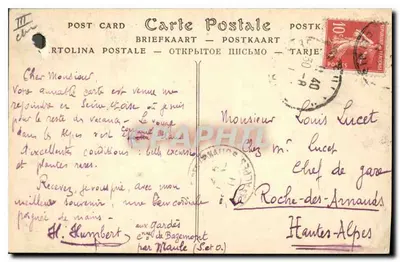 III
POST CARD
Carte Postale
BRIEFKAART — POSTKAART
CARTOLINA POSTALE — ОТКРЫТОЕ ПИСЬМО
10
Cher Monsieur
Votre aimable carte est venue me
rejoindre en Seine et Oise où je suis
pour le reste des vacances. Le voyage
dans les Alpes s'est
d'excellentes conditions : belle excursion
et plantes rares.
Recevez, je vous prie, avec mon
meilleur souvenir, une bien cordiale
poignée de mains.
H. Humbert
aux Gardes
Cne de Bazemont
par Maule (S. et O.)
Monsieur Louis Lucet
chez Mr Lucet
Chef de gare
La Roche-des-Arnauds
Hautes-Alpes